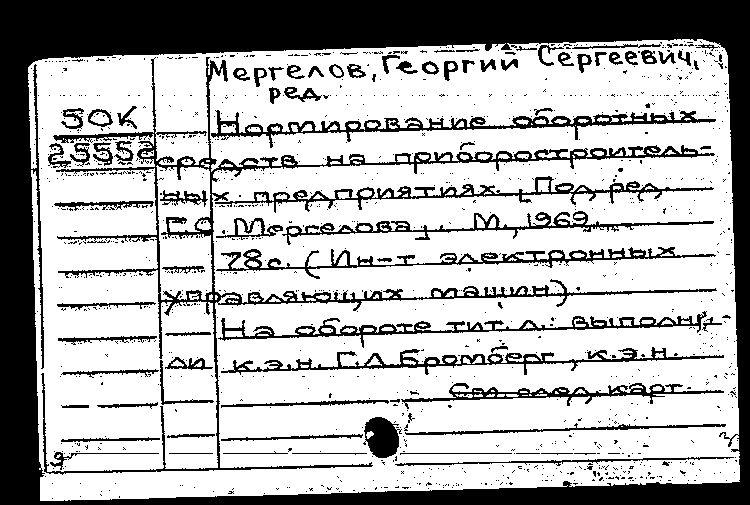 Мергелов, Георгий Сергеевич,
ред.
50К Нормирование оборотных
средств на приборостроитель-
ных предприятиях. [Под ред.
Г.С. Мергелова]. М., 1969.
78с. (Ин-т электронных
управляющих машин).
На обороте тит. л.: выполни-
ли к.э.н. Г.Л. Бромберг, к.э.н.
См. след. карт.